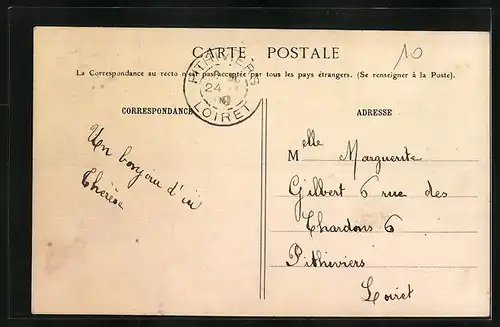 CARTE POSTALE
10
La Correspondance au recto n'est pas acceptée par tous les pays étrangers. (Se renseigner à la Poste).
PITHIVIERS
24
LOIRET
CORRESPONDANCE
ADRESSE
Un bonjour d'ici
Thérèse
Melle Marguerite
Gilbert 6 rue des
Chardons 6
Pithiviers
Loiret